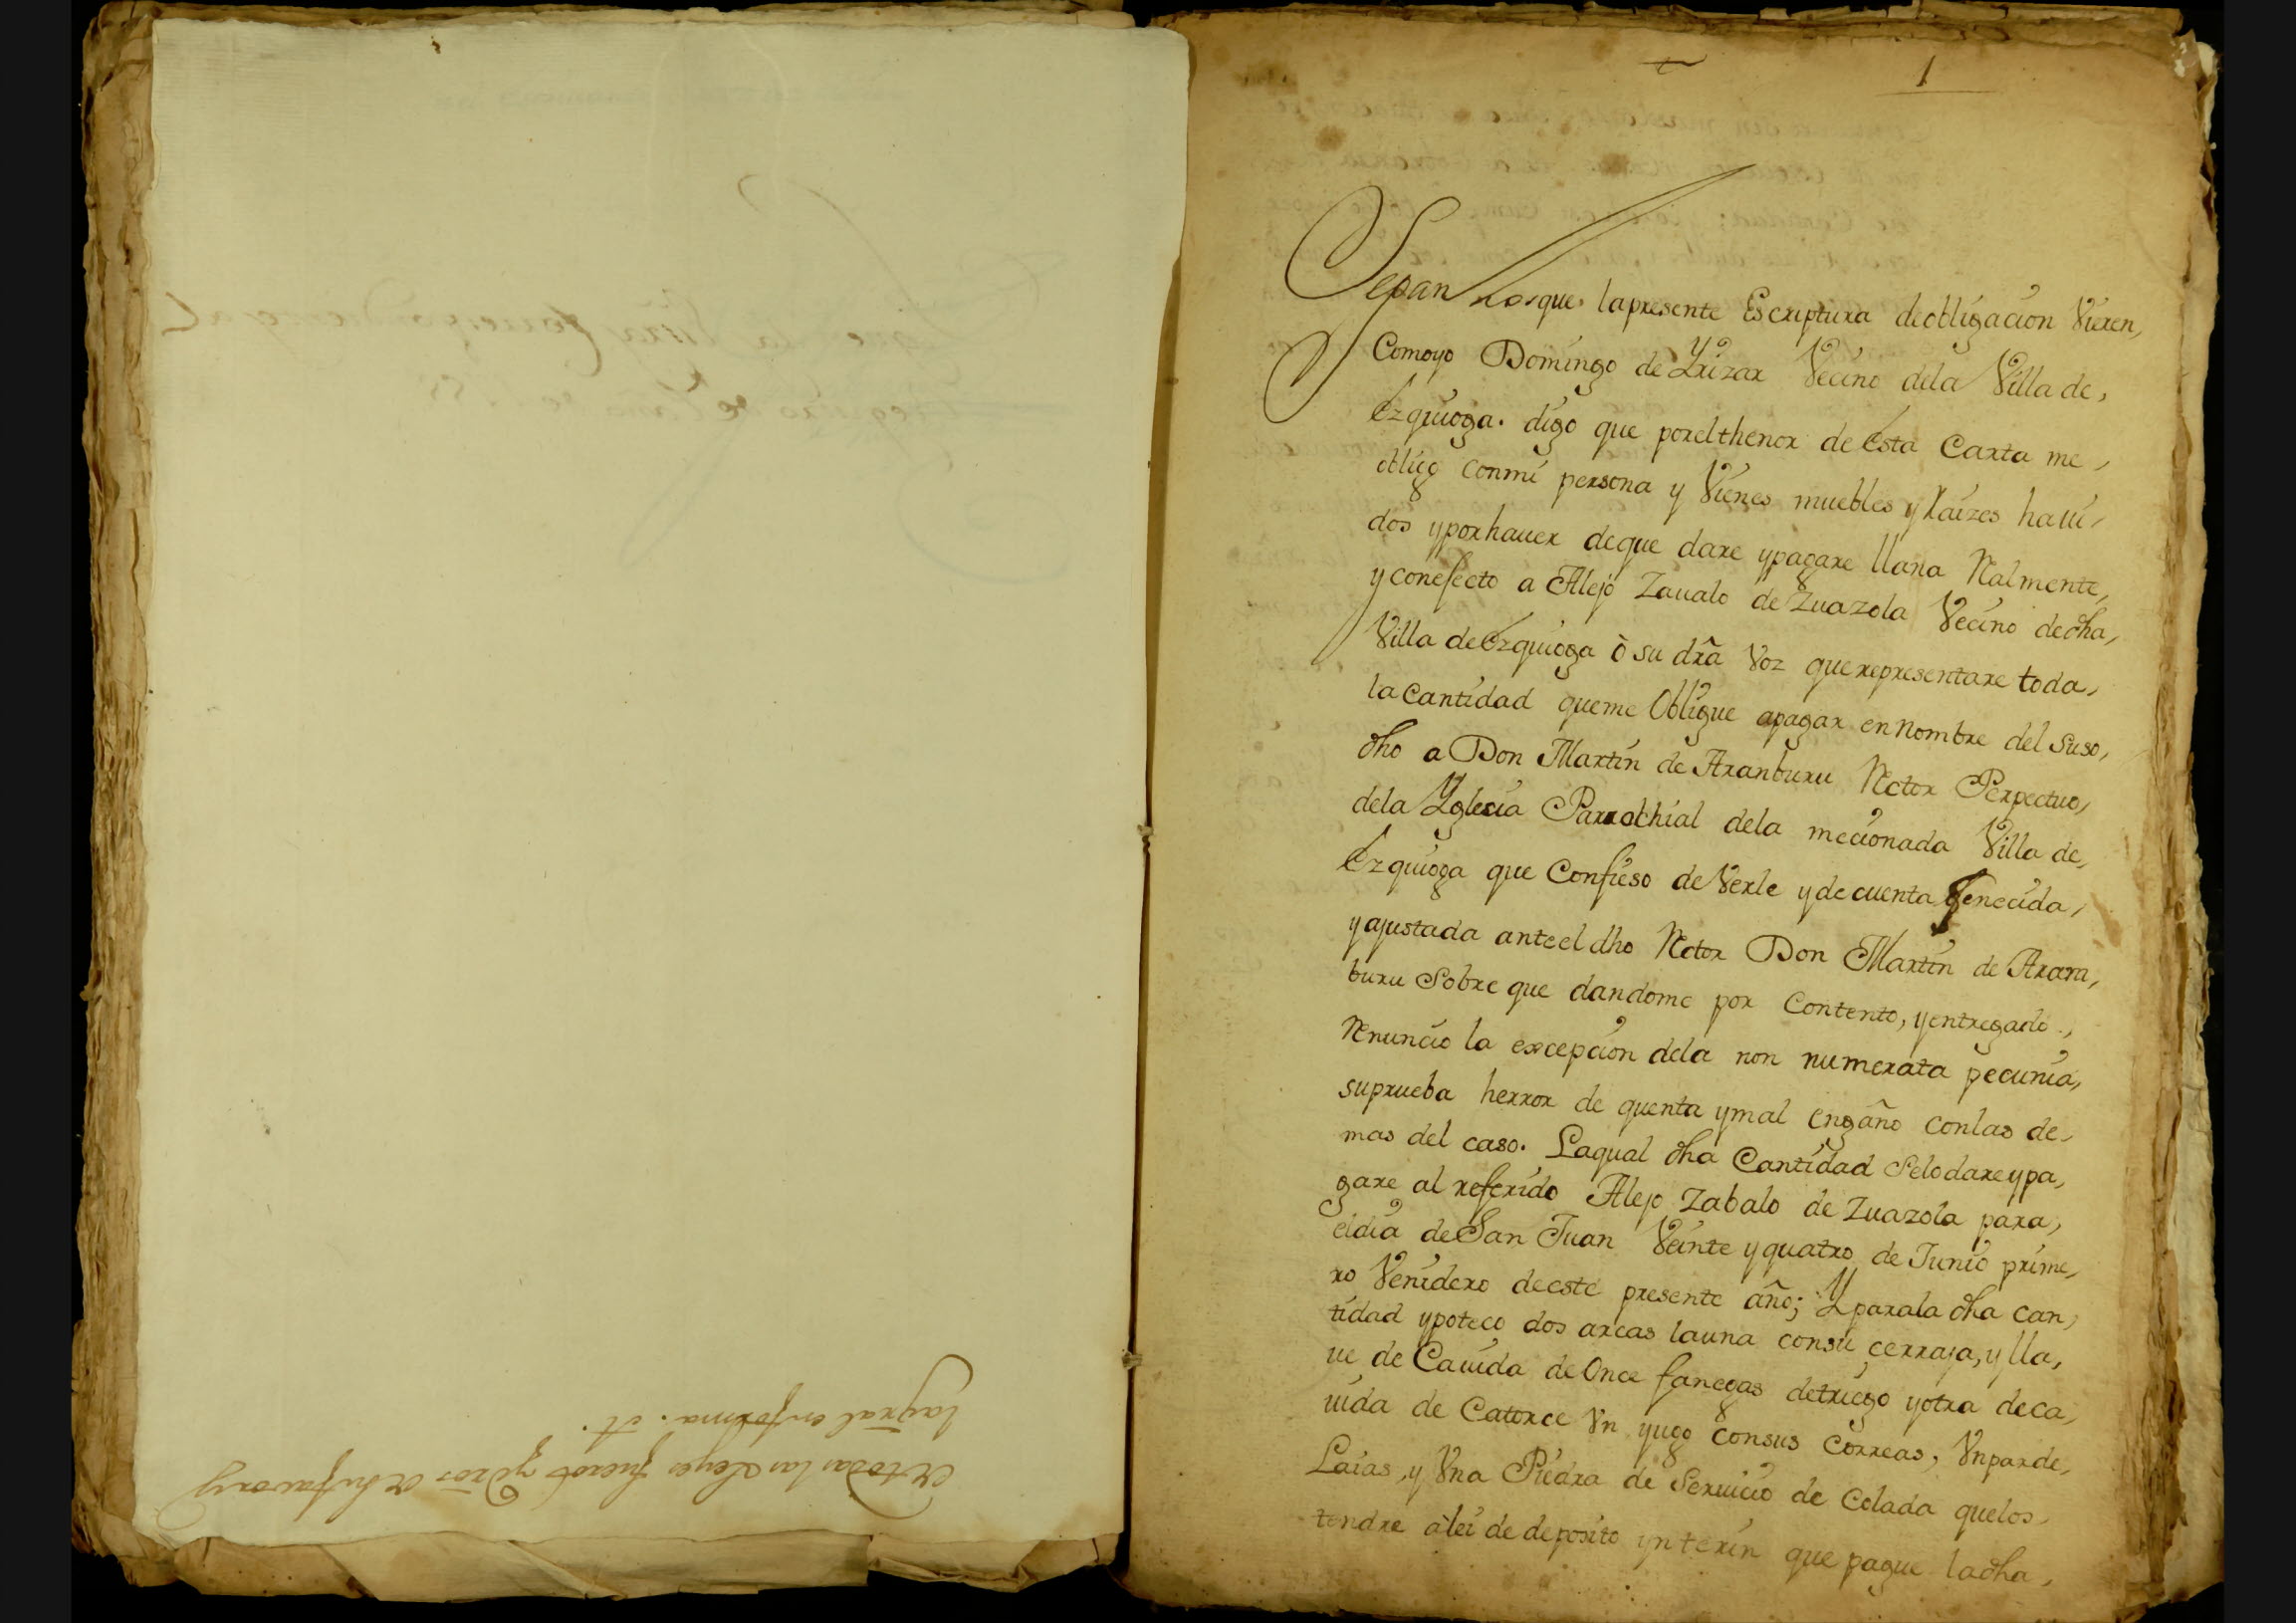 1
Sepan los que lapresente Escriptura deobligacion Vieren,
Comoyo Domingo de Yrizar Vecino dela Villa de,
Ezquioga. digo que porelthenor de Esta Carta me,
obligo conmi persona y Vienes muebles y Raizes haui,
dos yporhauer deque dare ypagare llana Realmente,
yconefecto a Alejo Zaualo de Zuazola Vecino dedha,
Villa deEzquioga ò su dra Voz querepresentare toda,
lacantidad queme Obligue apagar ennombre del suso,
dho a Don Martin de Aranburu Retor Perpectuo,
dela Yglesia Parrochial dela mecionada Villa de,
Ezquioga que Confieso deVerle ydecuenta fenecida,
yajustada anteel dho Retor Don Martin de Aran,
buru Sobre que dandome por Contento, yentregado.,
Renuncio la excepcion dela non numerata pecunia,
suprueba herror de quenta ymal engaño conlas de,
mas del caso. Laqual dha Cantidad Selodareypa,
gare al referido Alejo Zabalo de Zuazola para,
eldia deSan Juan Veinte yquatro de Junio prime,
ro Venidero deeste presente año; Y parala dha can,
tidad ypoteco dos arcas launa consu cerraja, y lla,
ue de Cauida de Once fanegas detriego yotra deca,
uida de Catorce Vn yugo consus Correas, Vnparde,
Laias, y Vna Piedra de Seruicio de Colada quelos,
tendre àlei de deposito ynterin que pague ladha,
A todas las Leyes fueros y dros de su favor y
la gral en forma.